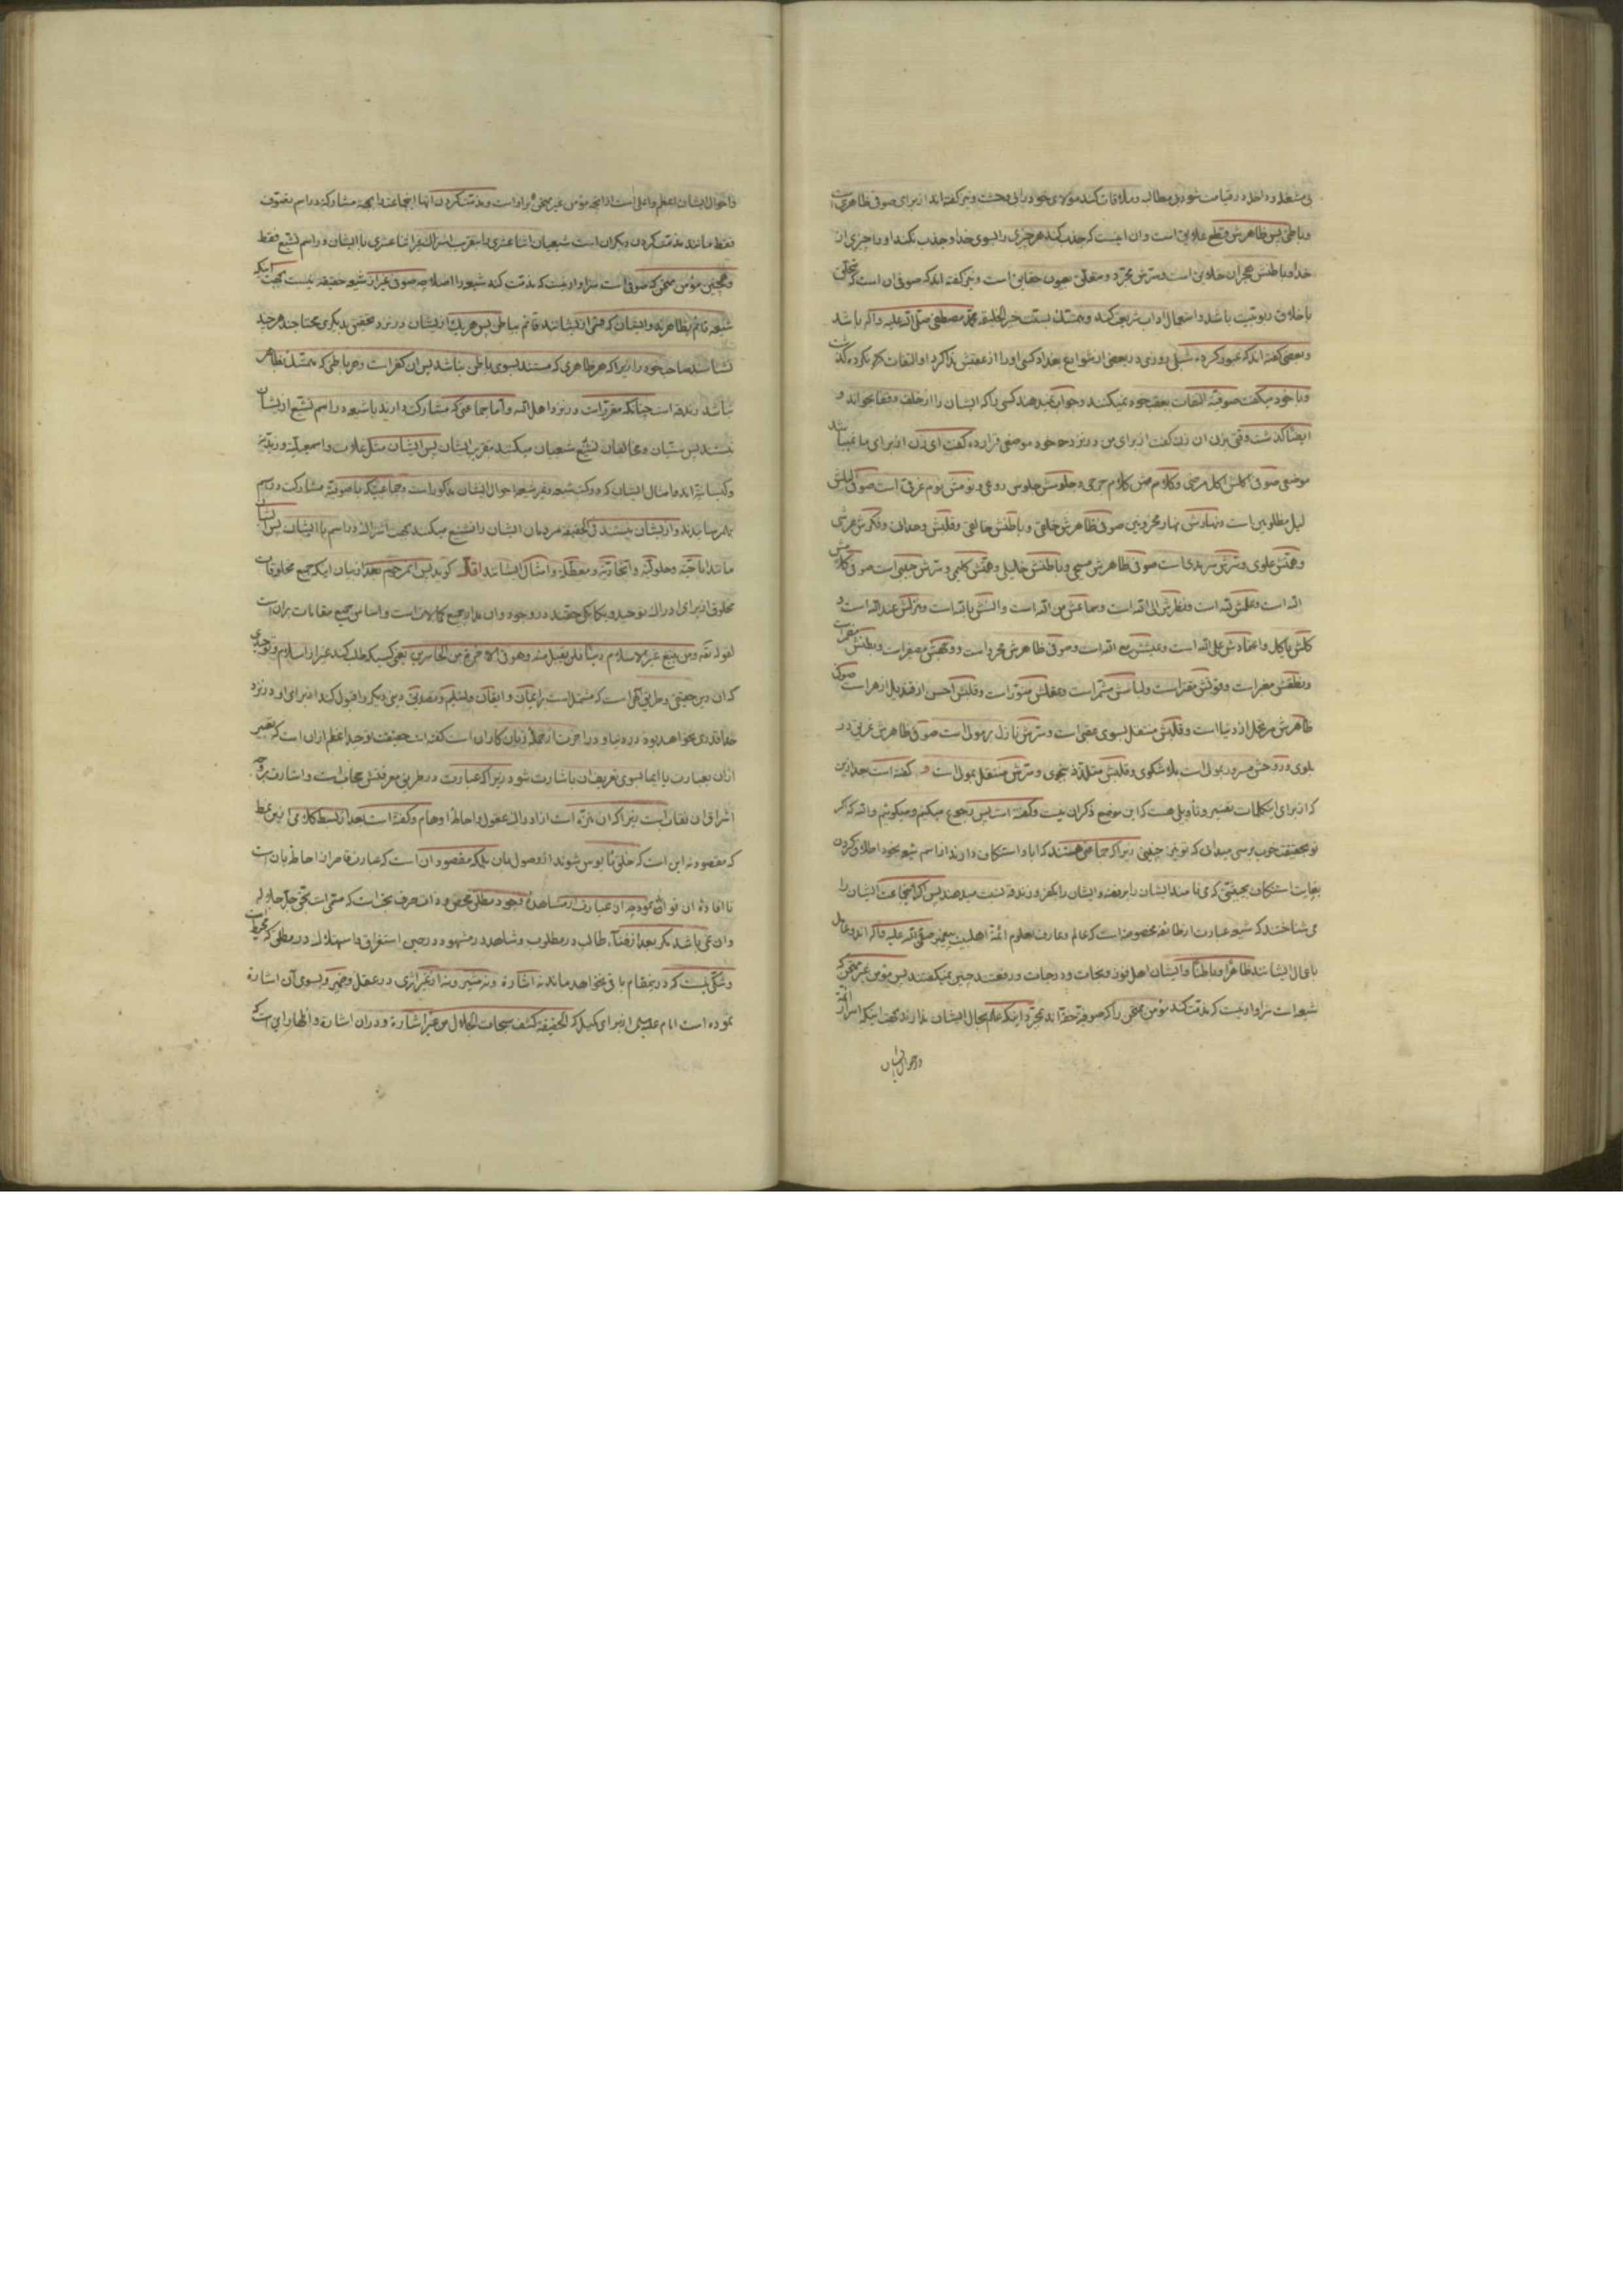 بی مشغله و داخل در قیامت شود بی مطالبه و ملاقات کند مولای خود را بی وحشت و نیز گفته اند از برای صوفی ظاهری است
و باطنی پس ظاهرش قطع علایق است و ان اینست که جذب کند هر چیزی را بسوی خدا و جذب نکند او را چیزی از
خدا و باطنش هجران خلایق است و سرش تجرد و حقایق است و نیز گفته اند که صوفی ان است که تخلق
باخلاق ربوبیت باشد و استعمال اداب شریعت کند و متمسک بسنت خیر الخلیقه محمد مصطفی صلی الله علیه و آله باشد
و بعضی گفته اند که عبور کرده شبلی روزی در بعضی از شوارع بغداد کسی او را از عقبش ندا کرد او التفات نکرده گذشت
و با خود میگفت صوفیه التفات بعقب خود نمیکنند و جواب نمیدهند کسی را که ایشان را از خلف و قفا بخواند و
ایضا گذشت وقتی بزن ان زن گفت از برای من در نزد خود موضعی قرار ده گفت ای زن از برای ما نمیباشد
موضعی صوفی اکلش اکل مرضی و کلامش کلام و جلوسش جلوس و نومش نوم غرقی است صوفی لیلش
لیل مظلومین است و نهارش نهار محزونین صوفی ظاهرش خلقی و باطنش خالقی و قلبش وحدانی و فکرش عرشی
و همتش علوی و سرش سرمدی است صوفی ظاهرش مسیحی و باطنش خلیلی و همتش کلیمی و سرش حبیبی است صوفی کلامش
الله است و عملش لله است و نظرش الی الله است و سماعش من الله است و انسش بالله است و منزلش عند الله است و
کلش باکل و اعتمادش علی الله است و عیشش مع الله است و صوفی ظاهرش است و وجهش مصفر است و بطنش
و نطقش است و قوتش است و لباسش است و عقلش منور است و قلبش احسن از قندیل ازهر است صوفی
ظاهرش مرتحل از دنیا است و قلبش منتقل بسوی عقبی است و سرش نازل بمولی است صوفی ظاهرش غریق در
بلوی و روحش مسرور بمولی است بلا شکوی و قلبش متلذذ بنجوی و سرش متصل بمولی است و گفته است بعد ازین
که از برای این کلمات تفسیر و تاویلی هست که این موضع ذکر ان نیست و گفته است پس رجوع میکنیم و میگوئیم والله که اگر
تو بحقیقت خوب برسی میدانی که تو نیز چنینی زیرا که جماعتی هستند که ابا و استنکاف دارند از اسم شیعه بخود اطلاق کردن
بغایت استنکاف بحیثیتی که می نامند ایشان را برفضه و ایشان را بکفر و زندقه نسبت میدهند پس اگر اینجماعت ایشان را
می شناختند که شیعه عبارت از طائفه مخصوصه است که عالم و عارف بعلوم ائمه اهلبیت پیغمبر صلی الله علیه و آله اند و عامل
باعمال ایشانند ظاهرا و باطنا و ایشان اهل فوز و نجات و درجات و رفعتند چنین نمیگفتند پس مؤمن غیر ممتحن که
شیعه است سزاوار نیست که مذمت کند مؤمن ممتحن را که صوفیه حقه اند بمجرد اینکه علم بحال ایشان ندارند بجهت اینکه اسرار ائمه
و احوال ایشان
و احوال ایشان اعظم و اعلی است از آنچه مؤمن غیر ممتحن بر او است و مذمت کردن آنها اینجماعت را بجهة مشارکت در اسم تصوف
فقط مانند مذمت کردن دیگران است شیعیان اثنا عشری را بتقریب اشتراک غیر اثنا عشری با ایشان در اسم تشیع فقط
و همچنین مؤمن ممتحن که صوفی است سزاوار نیست که مذمت کند شیعه را اصلا چه صوفی غیر از شیعه حقیقه نیست بجهت اینکه
شیعه قائم بظاهرند و ایشان که قسمی از ایشانند قائم بباطن پس هر یک از ایشان در نزد تحقیق بدیگری محتاجند هر چند
نشناسند صاحب خود را زیرا که هر ظاهری که مستند بسوی باطن نباشد پس ان کفر است و هر باطنی که متمسک بظاهر
نباشد زندقه است چنانکه مقرر است در نزد اهل الله و اما جماعتی که مشارکت دارند با شیعه در اسم تشیع از ایشان
نیستند پس سنیان و مخالفان تشنیع شیعیان میکنند بتقریب ایشان پس ایشان مثل غلات و اسمعیلیه و زیدیه
و کیسانیه اند و امثال ایشان که در کتب شیعه و غیر شیعه احوال ایشان مذکور است و جماعتیکه با صوفیه مشارکت در اسم
بهم رسانیدند و از ایشان نیستند فی الحقیقه مردمان ایشان را تشنیع میکنند بجهت اشتراک در اسم با ایشان پس ایشان
مانند اباحیه و حلولیه و اتحادیه و معطله و امثال ایشانند اقل گوید پس مترجم بعد از بیان اینکه جمیع مخلوقات
مخلوق از برای ادراک توحید و یکانگی حقند در وجود و ان مدار جمیع کمالات است و اساس جمیع مقامات بران است
لقوله تعه ومن یبتغ غیر الاسلام دینا فلن یقبل منه وهو فی الاخرة من الخاسرین یعنی کسیکه طلب کند غیر از اسلام و توحیدی
که ان دین حقیقی و طریق الهی است که مشتمل است بر ایمان و ایقان و تسلیم و تصدیق دینی دیگر را قبول کند از برای او در نزد
خدا قدری نخواهد بود در دنیا و در اخرت از جمله زیان کاران است گفته است حقیقت توحید اعظم ازان است که تعبیر
ازان بعبارت یا ایما بسوی تعریف ان باشارت شود زیرا که عبارت در طریق معرفتش حجاب است و اشارت بر وجه
اشراق ان نقاب است زیرا که ان منزه است از ادراک عقول و احاطه اوهام و گفته است بعد از بسط کلامی ازین نمط
که مقصود نه این است که خلق مأیوس شوند از وصول بان بلکه مقصود ان است که عبارت قاصر از احاطه بان است
تا افاده ان توان نمود چه ان عبارت از مشاهده وجود مطلق محض و ذات صرف بحت است که مسمی است بحق جل جلاله
و ان نمی باشد مگر بعد از فناء طالب در مطلوب و شاهد در مشهود در حین استغراق و استهلاک در مطلق که محیط است
و شکی نیست که در ینمقام باقی نخواهد ماند نه اشارة و نه مشیر و نه اثر غیرازی در عقل و ضمیر و بسوی آن اشارة
نموده است امام علیه السلام از برای کمیل که الحقیقة کشف سبحات الجلال من غیر اشارة و در ان اشارة و اظهار این است که